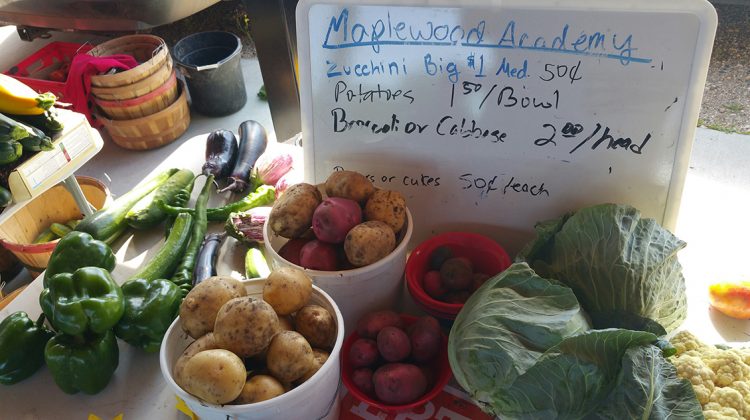 Maplewood Academy
Zucchini Big $1 Med. 50¢
Potatoes 1⁵⁰/Bowl
Brocoli or Cabbage 2⁰⁰/head
or cukes 50¢/each